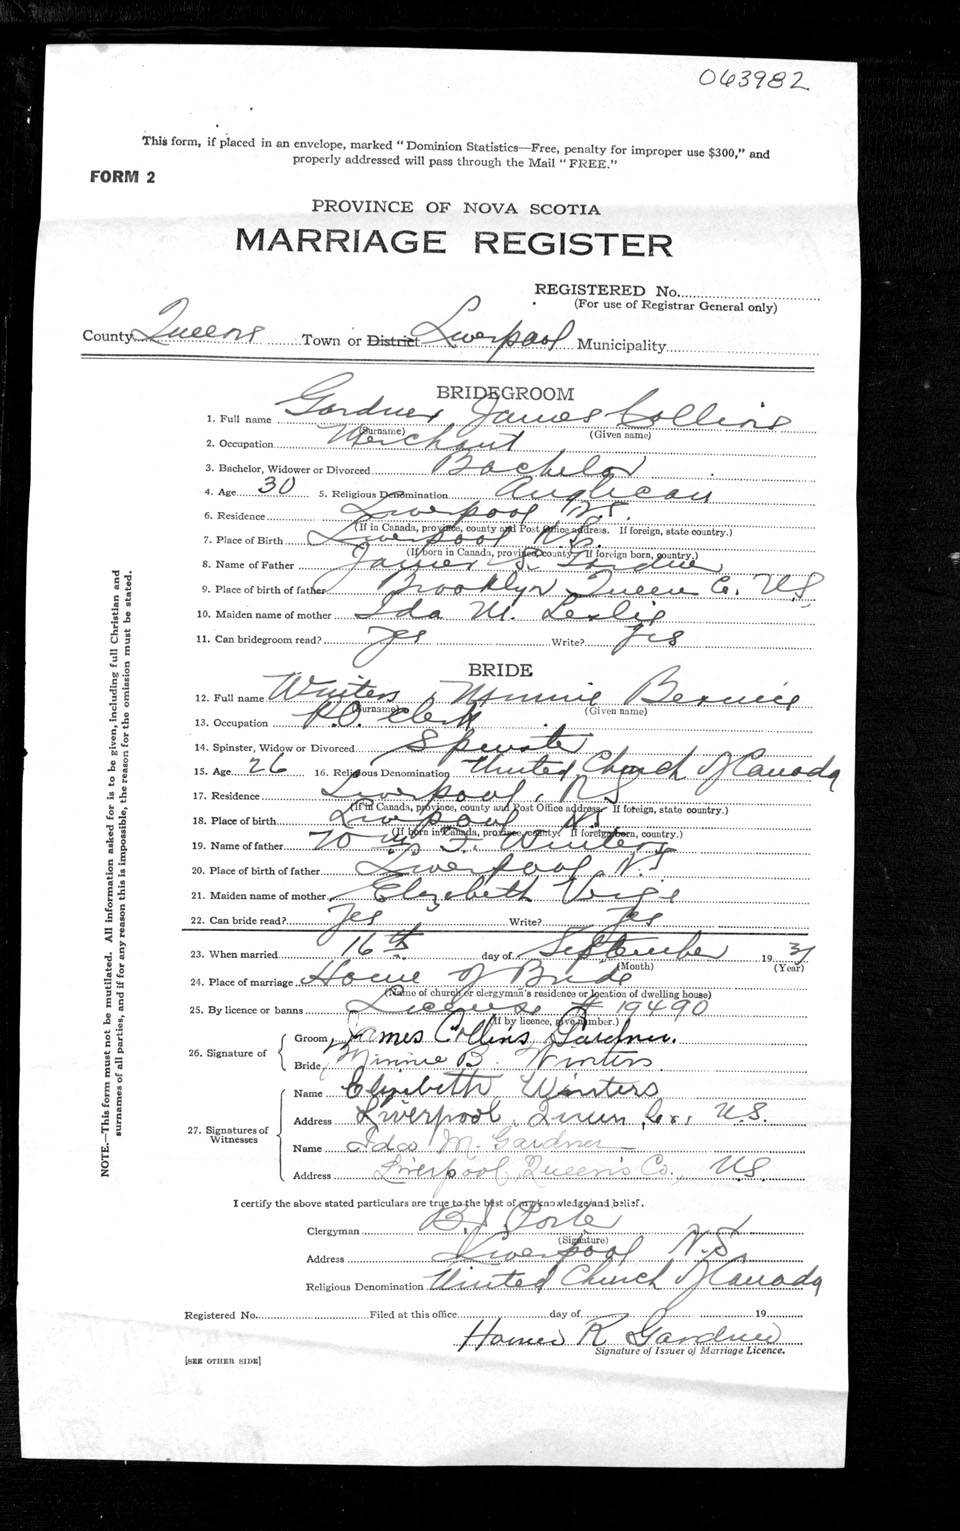 063982
This form, if placed in an envelope, marked "Dominion Statistics—Free, penalty for improper use $300," and
properly addressed will pass through the Mail "FREE."
FORM 2
PROVINCE OF NOVA SCOTIA
MARRIAGE REGISTER
REGISTERED No.
(For use of Registrar General only)
County Queens Town or District Liverpool Municipality
BRIDEGROOM
1. Full name Gardner James Collins
(Surname) (Given name)
2. Occupation Merchant
3. Bachelor, Widower or Divorced Bachelor
4. Age 30 5. Religious Denomination Anglican
6. Residence Liverpool N.S.
(If in Canada, province, county and Post Office address. If foreign, state country.)
7. Place of Birth Liverpool N.S.
(If born in Canada, province, county. If foreign born, country.)
8. Name of Father James Gardner
9. Place of birth of father Brooklyn Queens Co. N.S.
10. Maiden name of mother Ida M. Leslie
11. Can bridegroom read? Yes Write? Yes
BRIDE
12. Full name Winters, Minnie Bernice
(Surname) (Given name)
13. Occupation P.O. Clerk
14. Spinster, Widow or Divorced Spinster
15. Age 26 16. Religious Denomination United Church of Canada
17. Residence Liverpool, N.S.
(If in Canada, province, county and Post Office address. If foreign, state country.)
18. Place of birth Liverpool N.S.
(If born in Canada, province, county. If foreign born, country.)
19. Name of father Wm. F. Winters
20. Place of birth of father Liverpool, N.S.
21. Maiden name of mother Elizabeth Verge
22. Can bride read? Yes Write? Yes
23. When married 16th day of September 1937
(Month) (Year)
24. Place of marriage Home of Bride
(Name of church or clergyman's residence or location of dwelling house)
25. By licence or banns License # 19490
(If by licence, give number.)
26. Signature of Groom James Collins Gardner.
Bride Minnie B. Winters
27. Signatures of Witnesses
Name Elizabeth Winters
Address Liverpool, Queens Co., N.S.
Name Ida M. Gardner
Address Liverpool, Queen's Co., N.S.
I certify the above stated particulars are true to the best of my knowledge and belief.
Clergyman B. J. Porter
(Signature)
Address Liverpool N.S.
Religious Denomination United Church of Canada
Registered No. Filed at this office day of 19
Homer R Gardner
Signature of Issuer of Marriage Licence.
[SEE OTHER SIDE]
NOTE.—This form must not be mutilated. All information asked for is to be given, including full Christian and
surnames of all parties, and if for any reason this is impossible, the reason for the omission must be stated.